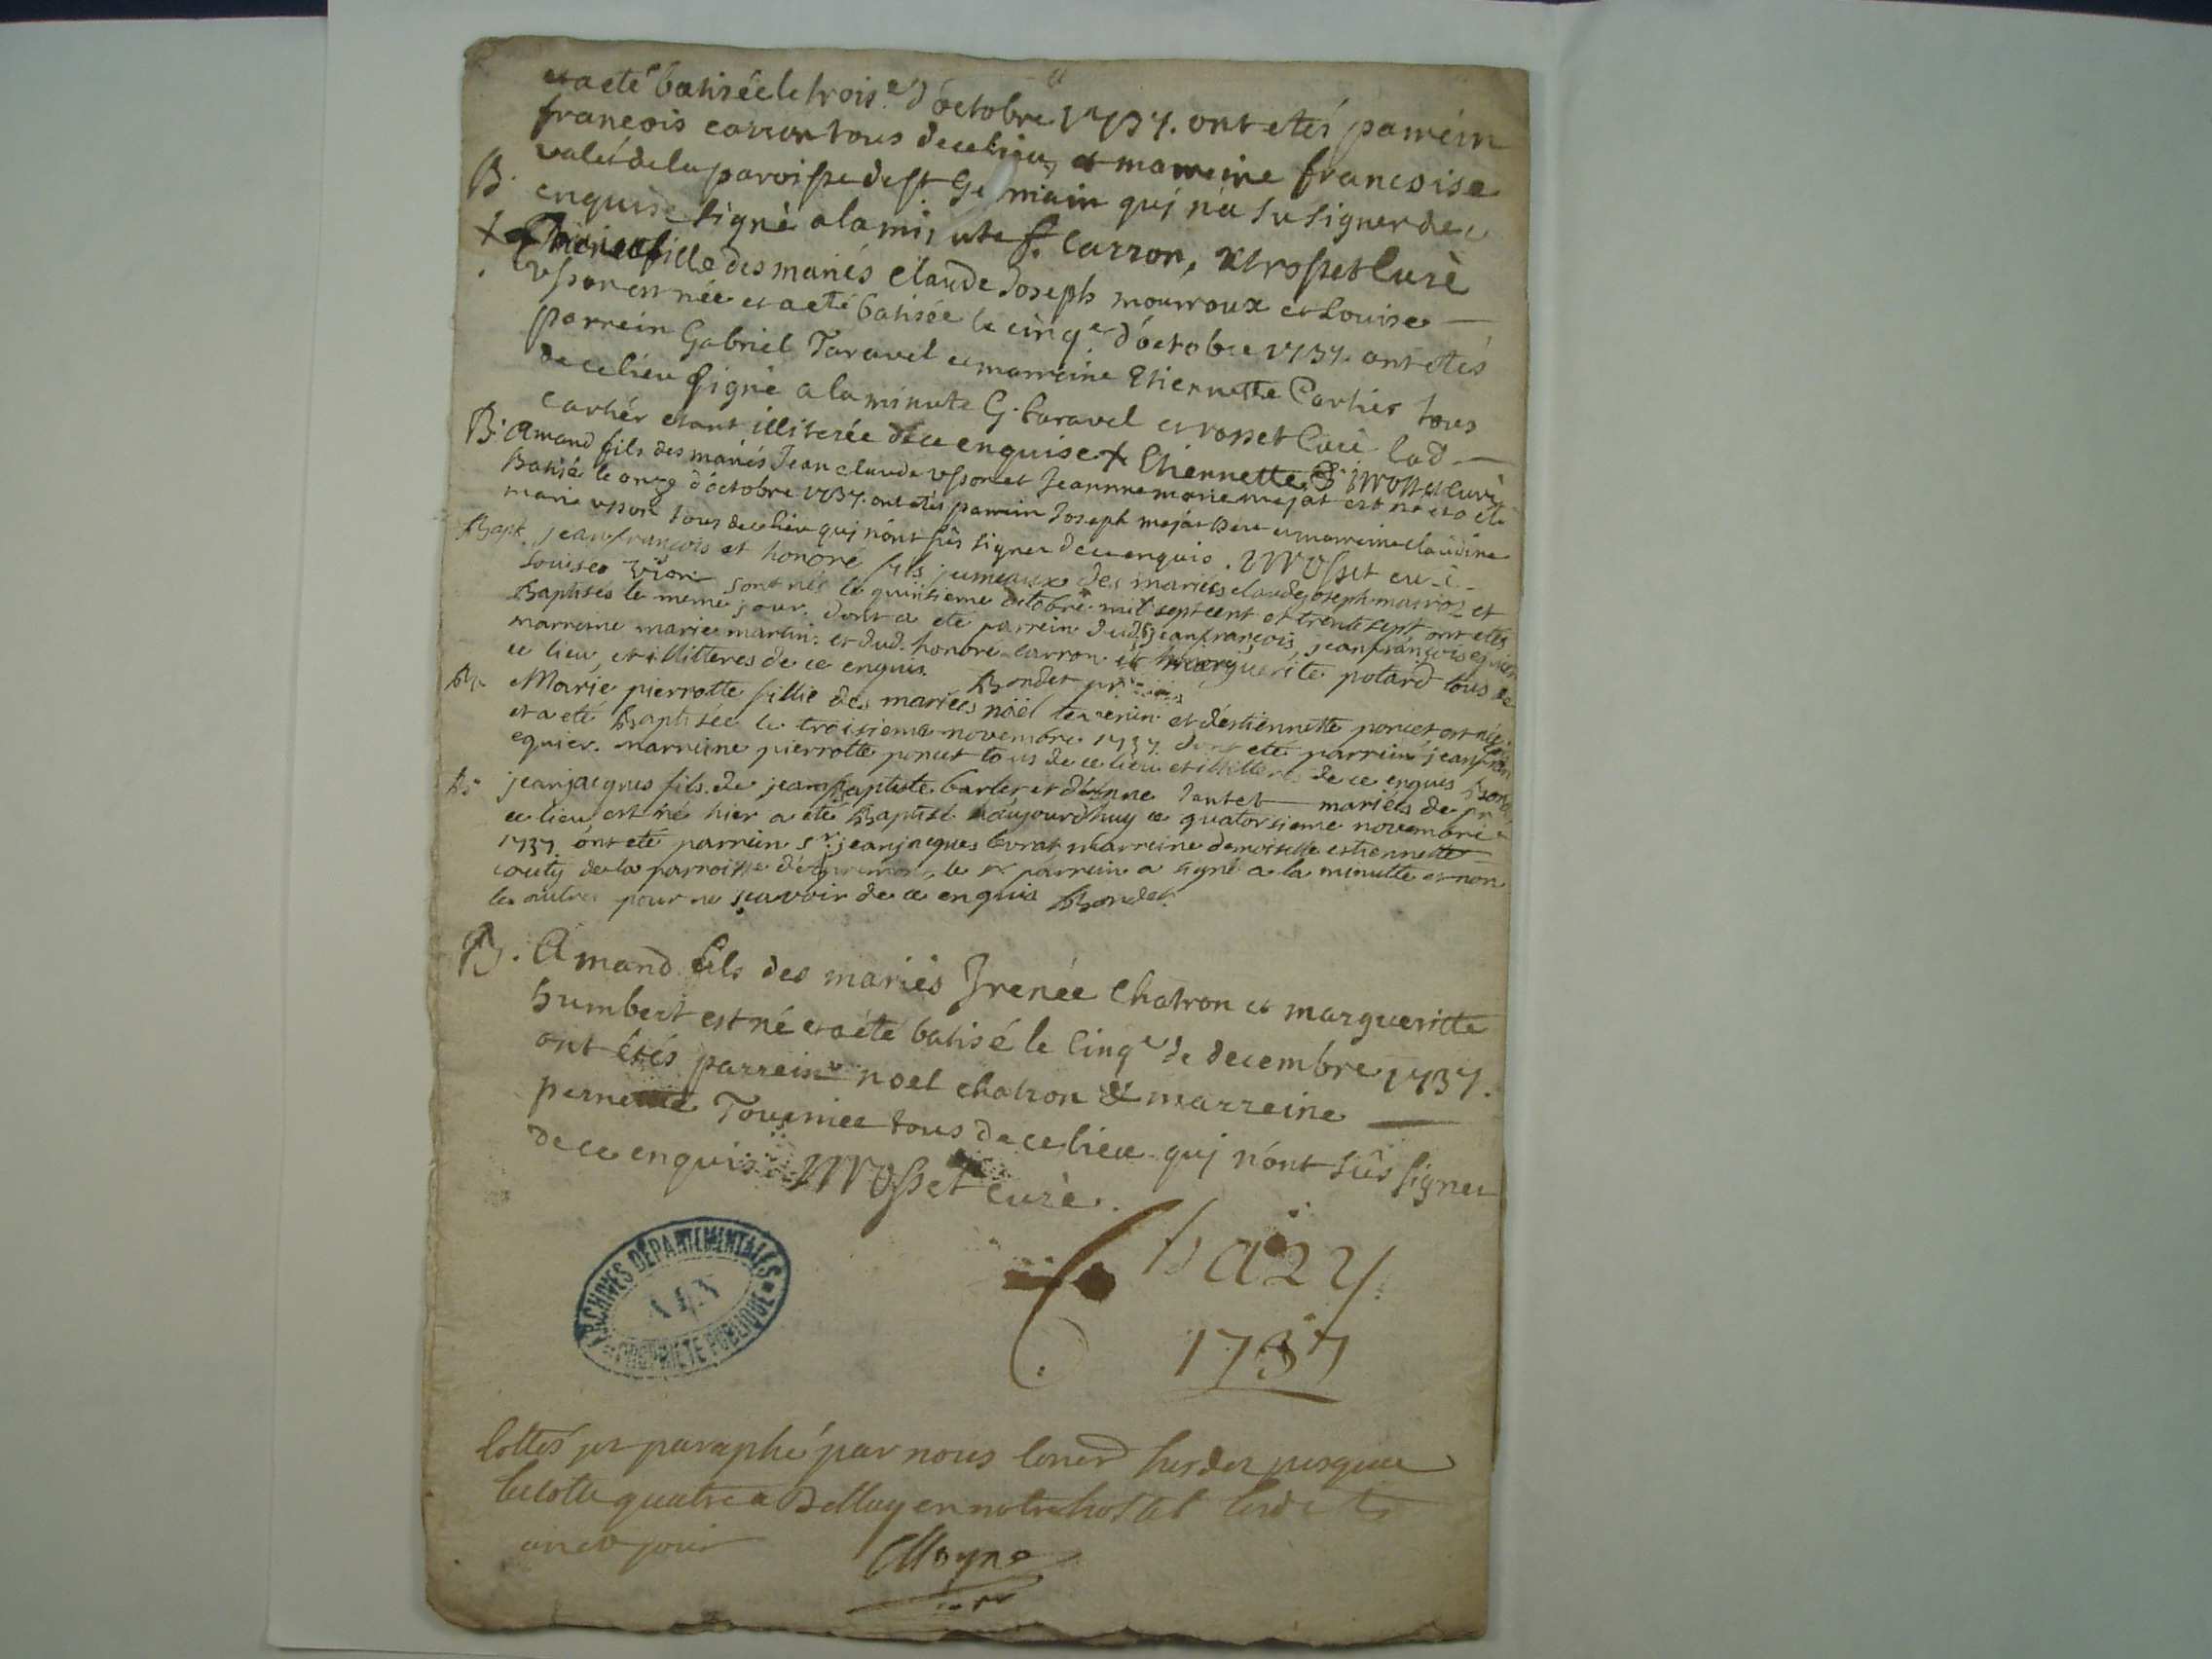 et a eté batisée le trois.e d'octobre 1737. ont etés parrein
francois carron tous de ce lieu, et marreine francoise
valet de la paroisse de st. Germain quj n'a su signer de ce
enquise signè a la minute f. Carron, rosset Curè
B. fille des mariés Claude Joseph mourroux et Louise
Vsson est née et a eté batisée le cinq.e d'octobre 1737. ont etés
parrein Gabriel Taravel et marreine Etiennette Cartier tous
de ce lieu signé a la minute G. taravel et rosset Curè lad
Cartiér etant illiterée de ce enquise + Etiennette rosset curè
B. Amand fils des mariés Jean claude Vsson et Jeannne marie mejat est né et a eté
Batisé le onze d'octobre 1737. ont etés parrein Joseph mejat et marreine claudine
marie vsson tous de ce lieu quj n'ont sûs signer de ce enquis. rosset curé
Bapt. jean françois et honoré fils jumeaux des mariés claude joseph mauroz et
Louise sont nés le quinsieme octobre mil sept cent et trente sept, ont etés
Baptisés le meme jour. dont a eté parrein dud. jean françois, jean françois equier
marreine marie martin: et dud. honoré carron et marguerite potard tous de
ce lieu, et illitteres de ce enquis. Bondet
B. Marie pierrotte fillie des mariés noël tevenin et d'estiennette poncet, est née
et a eté Baptisée le troisieme novembre 1737. dont eté parrein jean fran
equier. marreine pierrotte poncet tous de ce lieu et illitteres de ce enquis Bond
B. jean jacques fils de jean Baptiste Cartier et d'anne Jantet mariés de
ce lieu, est né hier a eté Baptisé aujourd'huy ce quatorsieme novembre
1737. ont eté parrein sr. jean jacques levrat marreine demoiselle estiennette
de la parroisse le sr parrein a signé a la minutte et non
les autres pour ne sçavoir de ce enquis Bondet.
B. Amand fils des mariés Jrenée Chatron et margueritte
humbert est né et a été batisé le Cinq.e de decembre 1737.
ont étés parrein noel chatron & marreine
pernette Tournier tous de ce lieu quj n'ont sûs signer
de ce enquis rosset curè.
Chazy
1737
ARCHIVES DÉPARTEMENTALES
PROPRIÉTÉ PUBLIQUE
Cottés et paraphé par nous jusques
la cotte quatre a Belley en notre hostel
an et jour